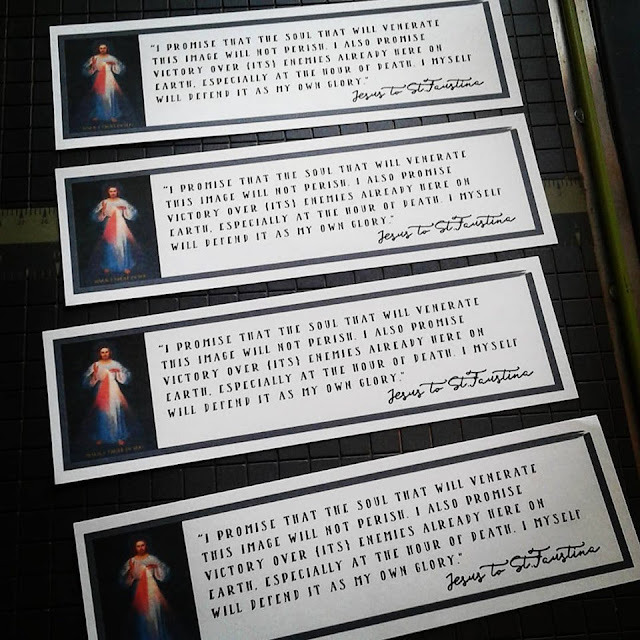 "I PROMISE THAT THE SOUL THAT WILL VENERATE
THIS IMAGE WILL NOT PERISH. I ALSO PROMISE
VICTORY OVER {ITS} ENEMIES ALREADY HERE ON
EARTH, ESPECIALLY AT THE HOUR OF DEATH. I MYSELF
WILL DEFEND IT AS MY OWN GLORY."
Jesus to St. Faustina
"I PROMISE THAT THE SOUL THAT WILL VENERATE
THIS IMAGE WILL NOT PERISH. I ALSO PROMISE
VICTORY OVER {ITS} ENEMIES ALREADY HERE ON
EARTH, ESPECIALLY AT THE HOUR OF DEATH. I MYSELF
WILL DEFEND IT AS MY OWN GLORY."
Jesus to St. Faustina
"I PROMISE THAT THE SOUL THAT WILL VENERATE
THIS IMAGE WILL NOT PERISH. I ALSO PROMISE
VICTORY OVER {ITS} ENEMIES ALREADY HERE ON
EARTH, ESPECIALLY AT THE HOUR OF DEATH. I MYSELF
WILL DEFEND IT AS MY OWN GLORY."
Jesus to St. Faustina
"I PROMISE THAT THE SOUL THAT WILL VENERATE
THIS IMAGE WILL NOT PERISH. I ALSO PROMISE
VICTORY OVER {ITS} ENEMIES ALREADY HERE ON
EARTH, ESPECIALLY AT THE HOUR OF DEATH. I MYSELF
WILL DEFEND IT AS MY OWN GLORY."
Jesus to St. Faustina